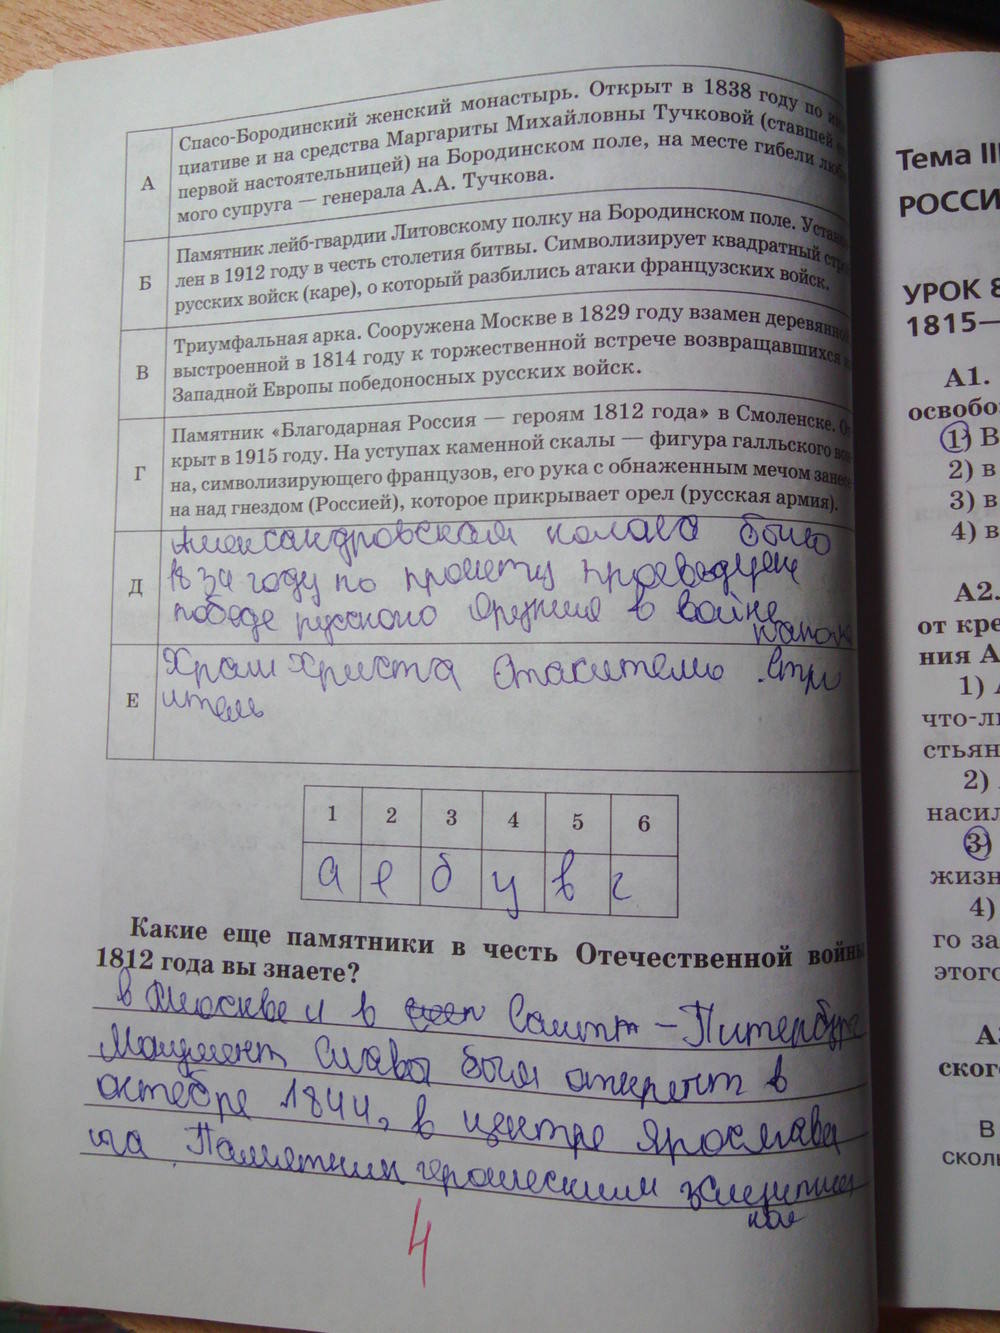 А
Спасо-Бородинский женский монастырь. Открыт в 1838 году по
циативе и на средства Маргариты Михайловны Тучковой (ставшей
первой настоятельницей) на Бородинском поле, на месте гибели
мого супруга — генерала А.А. Тучкова.
Б
Памятник лейб-гвардии Литовскому полку на Бородинском поле.
лен в 1912 году в честь столетия битвы. Символизирует квадратный
русских войск (каре), о который разбились атаки французских войск.
В
Триумфальная арка. Сооружена Москве в 1829 году взамен деревянной
выстроенной в 1814 году к торжественной встрече возвращавшихся
Западной Европы победоносных русских войск.
Г
Памятник «Благодарная Россия — героям 1812 года» в Смоленске.
крыт в 1915 году. На уступах каменной скалы — фигура галльского
на, символизирующего французов, его рука с обнаженным мечом
на над гнездом (Россией), которое прикрывает орел (русская армия).
Д
Александровская колага было
1834 году по проекту
победе русского оружия в войне
Е
Храм Христа Спасителю
итель
1 2 3 4 5 6
а е б ц в г
Какие еще памятники в честь Отечественной войны
1812 года вы знаете?
в Москве и в Санкт-Питербурге
Монумент Славы был открыт в
октебре 1844, в центре Ярослава
на Памятник героическим
4
Тема III
РОССИ
УРОК 8
1815—
А1.
освобо
1) В
2) в
3) в
4) в
А2.
от кре
ния А
1)
что-л
стьян
2)
насил
3)
жизн
4)
го за
этого
А
ског
В
сколь